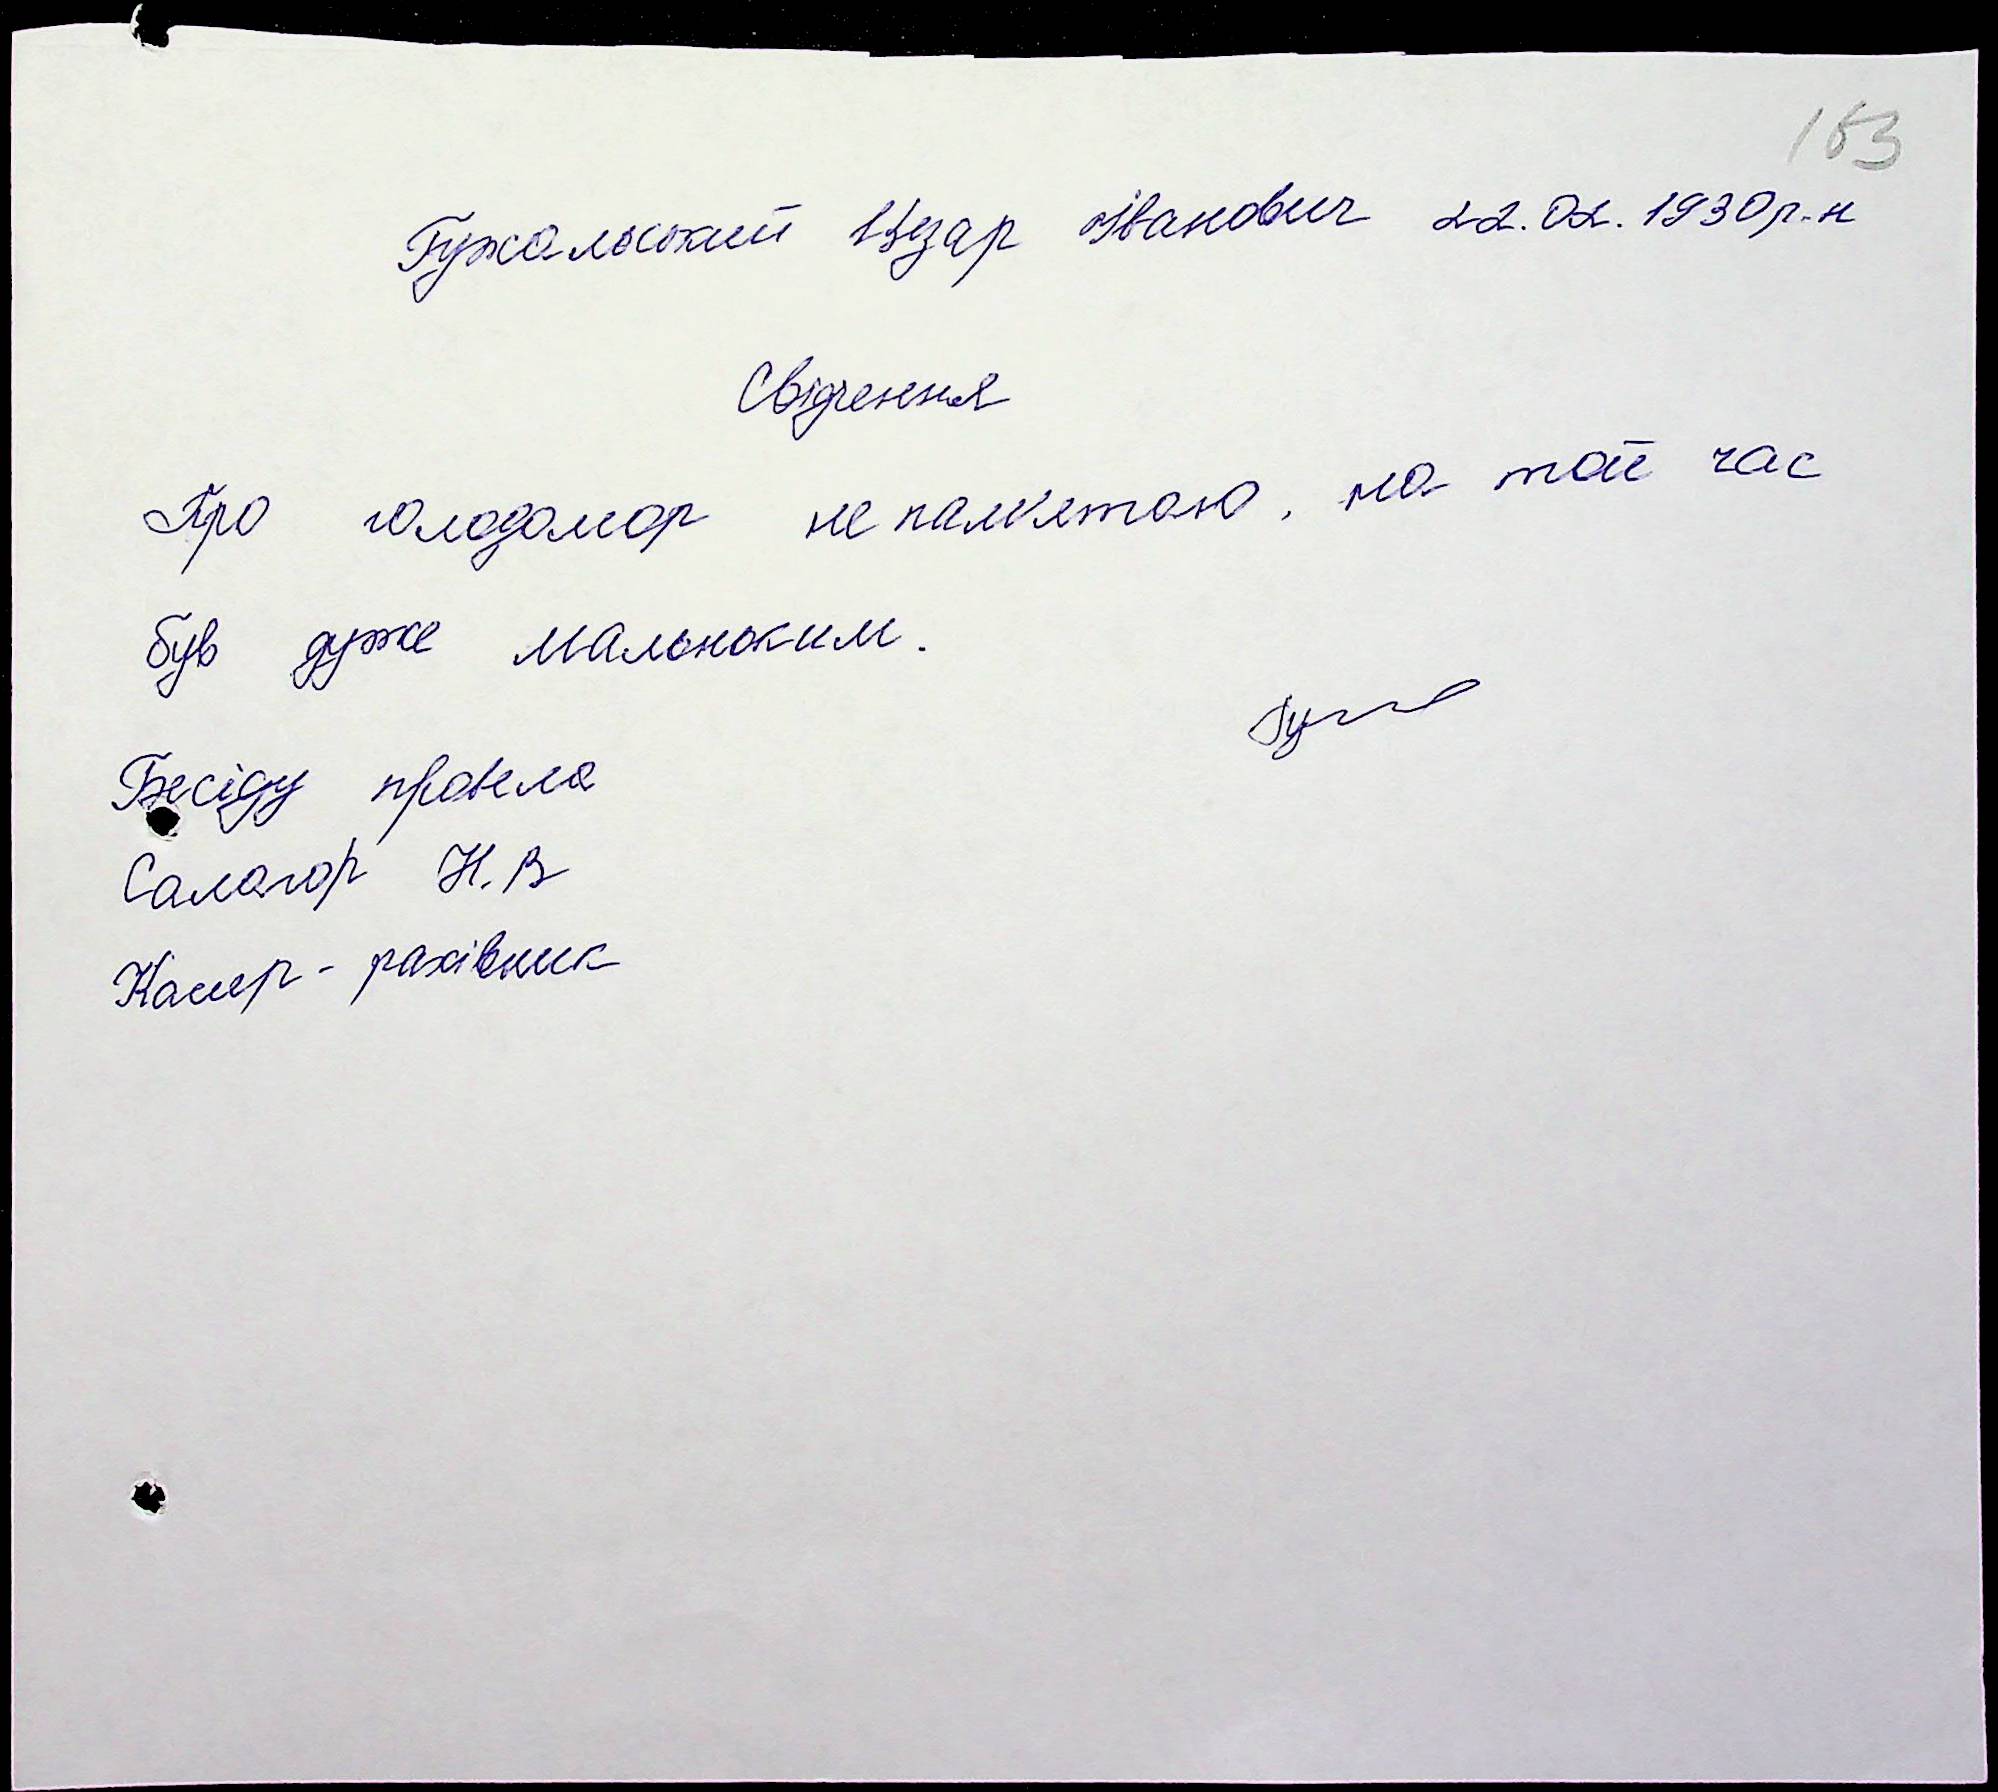 153
Гужальський Цезар Іванович 22.02.1930р.н
Свідчення
Про голодомор не пам'ятаю, на той час
був дуже маленьким.
Бесіду провела
Салагор Н.В
Касир-рахівник